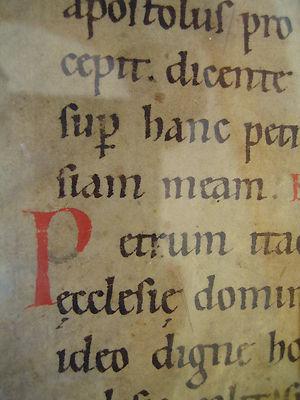 apostolus pro
cepit. dicente
sup hanc petr
siam meam.
Petrum itaq
ęcclesię domin
ideo digne ho